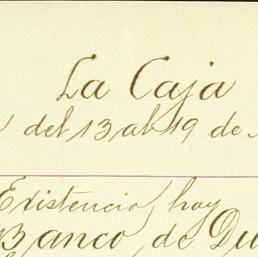 La Caja
del 13 al 19 de
Existencia, hoy
Banco, de Du